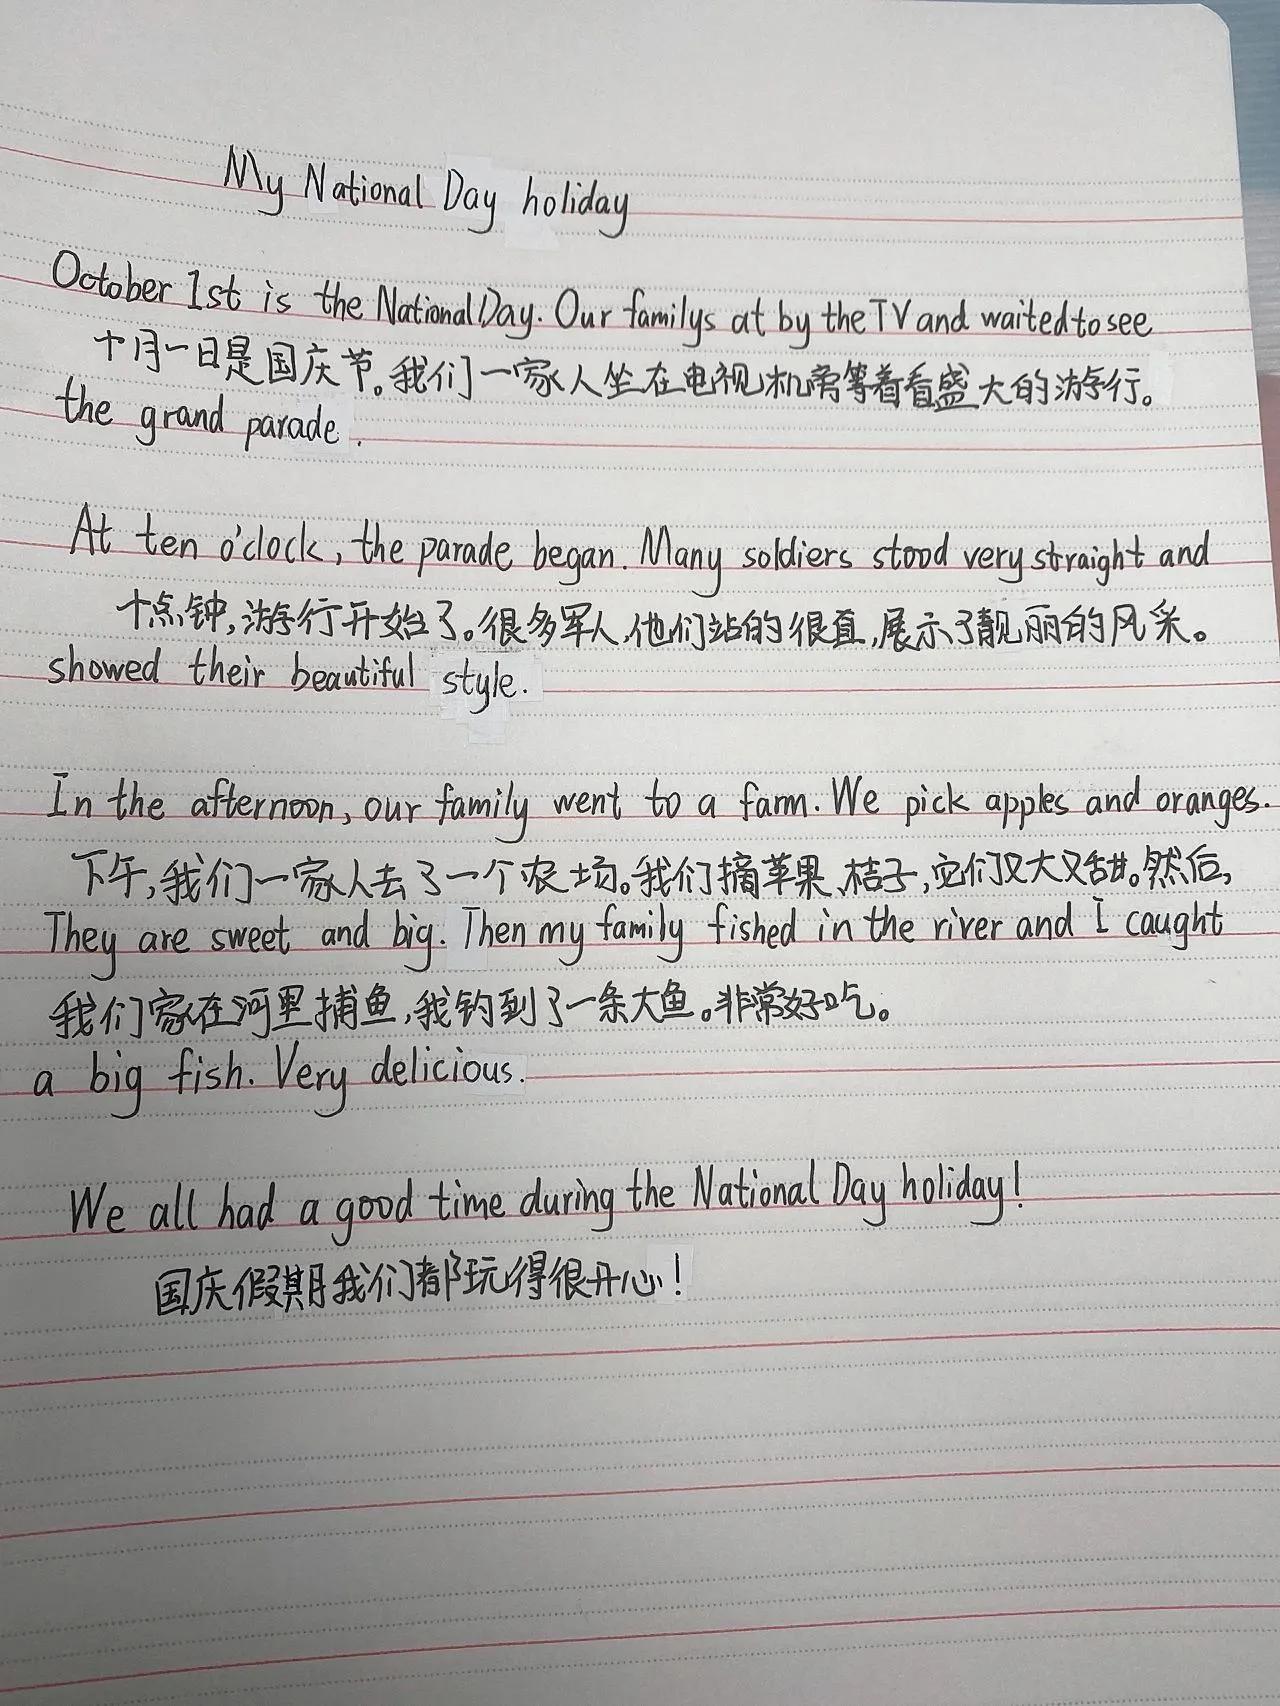 My National Day holiday
October 1st is the National Day. Our familys at by the TV and waited to see
十月一日是国庆节。我们一家人坐在电视机旁等着看盛大的游行。
the grand parade.
At ten o'clock, the parade began. Many soldiers stood very straight and
十点钟,游行开始了。很多军人,他们站的很直,展示了靓丽的风采。
showed their beautiful style.
In the afternoon, our family went to a farm. We pick apples and oranges.
下午,我们一家人去了一个农场。我们摘苹果、桔子,它们又大又甜。然后,
They are sweet and big. Then my family fished in the river and I caught
我们家在河里捕鱼,我钓到了一条大鱼。非常好吃。
a big fish. Very delicious.
We all had a good time during the National Day holiday!
国庆假期我们都玩得很开心!